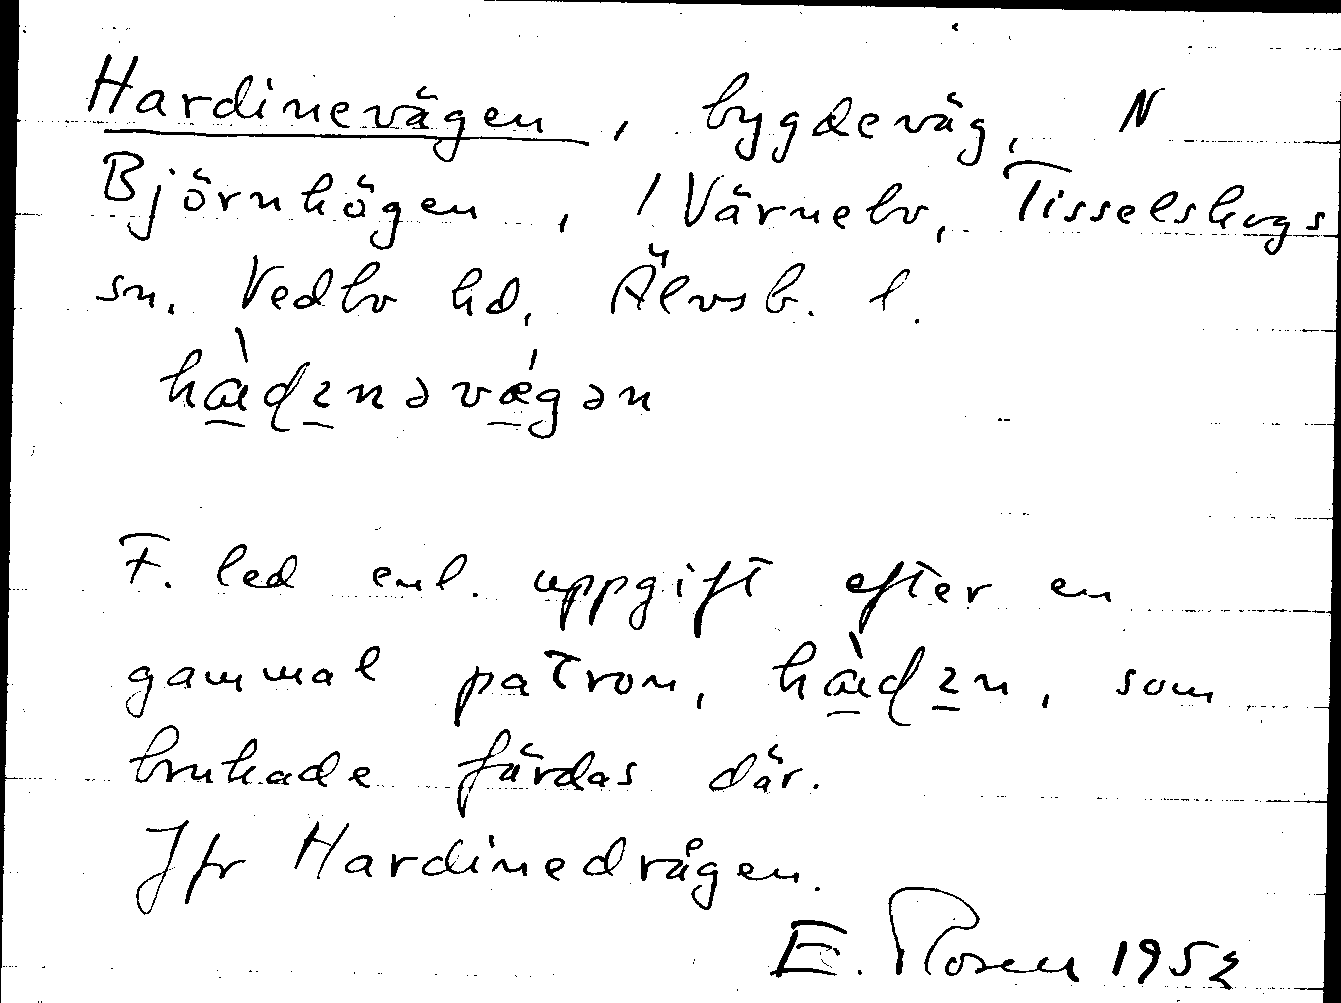 Hardinevägen, bygdeväg, N
Björnhögen, i Värnebo, Tisselskogs
sn. Vedbo hd, Älvsb. l.
hà̱ɖɪnəvǽ̱gən
F. led enl. uppgift efter en
gammal patron, hà̱ɖɪn, som
brukade färdas där.
Jfr Hardinedrågen.
E. Rosell 1952